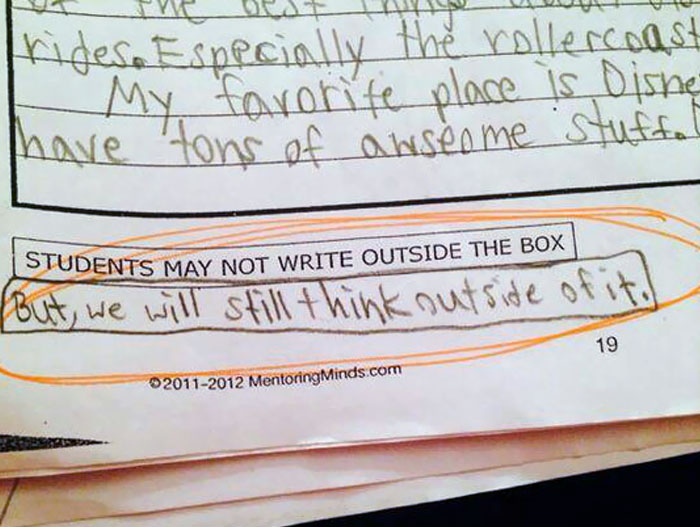 of the best things about the
rides. Especially the rollercoast
My favorite place is Disne
have tons of awseome stuff.
STUDENTS MAY NOT WRITE OUTSIDE THE BOX
But, we will still think outside of it.
19
©2011-2012 MentoringMinds.com